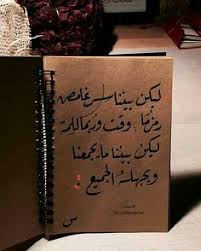 ليكن بيننا سر غامض
رمز ما وقت وربما كلمة
ليكن بيننا ما يجمعنا
ويجهله الجميع
س